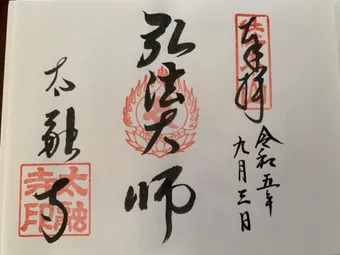 奉拝
令和五年
九月三日
弘法大師
太融寺
太融寺印